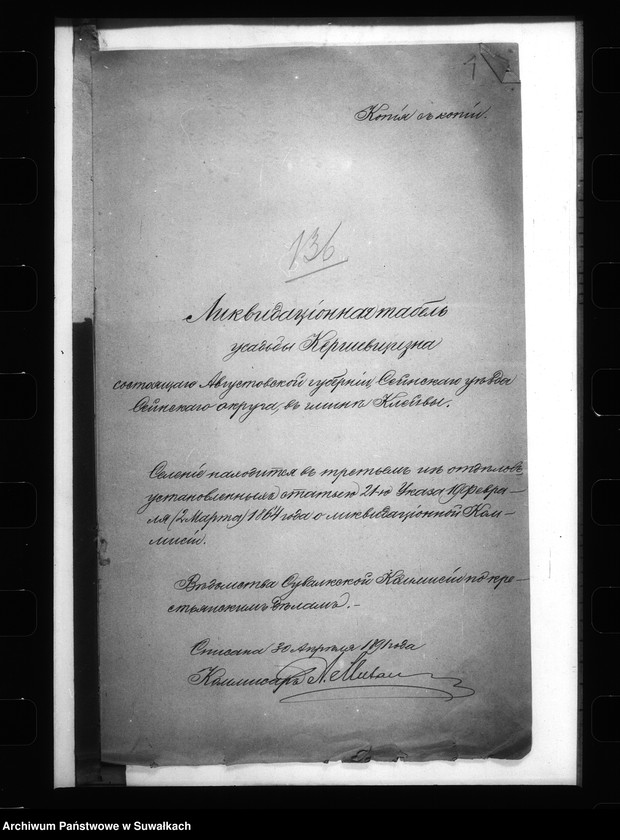 1
Копія съ копіи.
136
Ликвидаціонная табель
усадьбы
состоящаго Августовской губерніи, Сейнскаго уѣзда
Сейнскаго округа, въ гминѣ Клейвы.
Селеніе находится въ третьемъ изъ отдѣловъ
установленныхъ статьею 21-ю Указа 19 Февра-
ля (2 Марта) 1864 года о ликвидаціонной Ком-
мисіи.
Вѣдомства Сувалкской Коммисіи по кре-
стьянскимъ дѣламъ.-
Списана 30 Апрѣля года
Коммисаръ А.
Archiwum Państwowe w Suwałkach